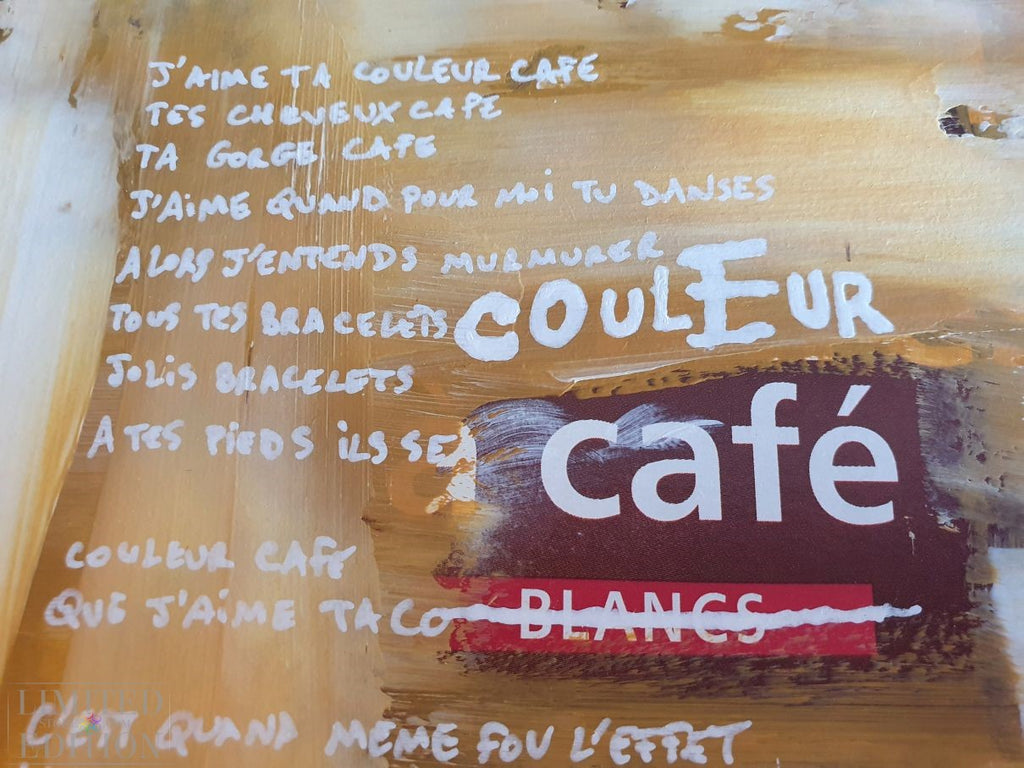 J'AIME TA COULEUR CAFE
TES CHEVEUX CAFE
TA GORGE CAFE
J'AIME QUAND POUR MOI TU DANSES
ALORS J'ENTENDS MURMURER
TOUS TES BRACELETS
JOLIS BRACELETS
A TES PIEDS ILS SE
COULEUR
café
BLANCS
COULEUR CAFE
QUE J'AIME TA CO
C'EST QUAND MEME FOU L'EFFET
LIMITED
EDITION